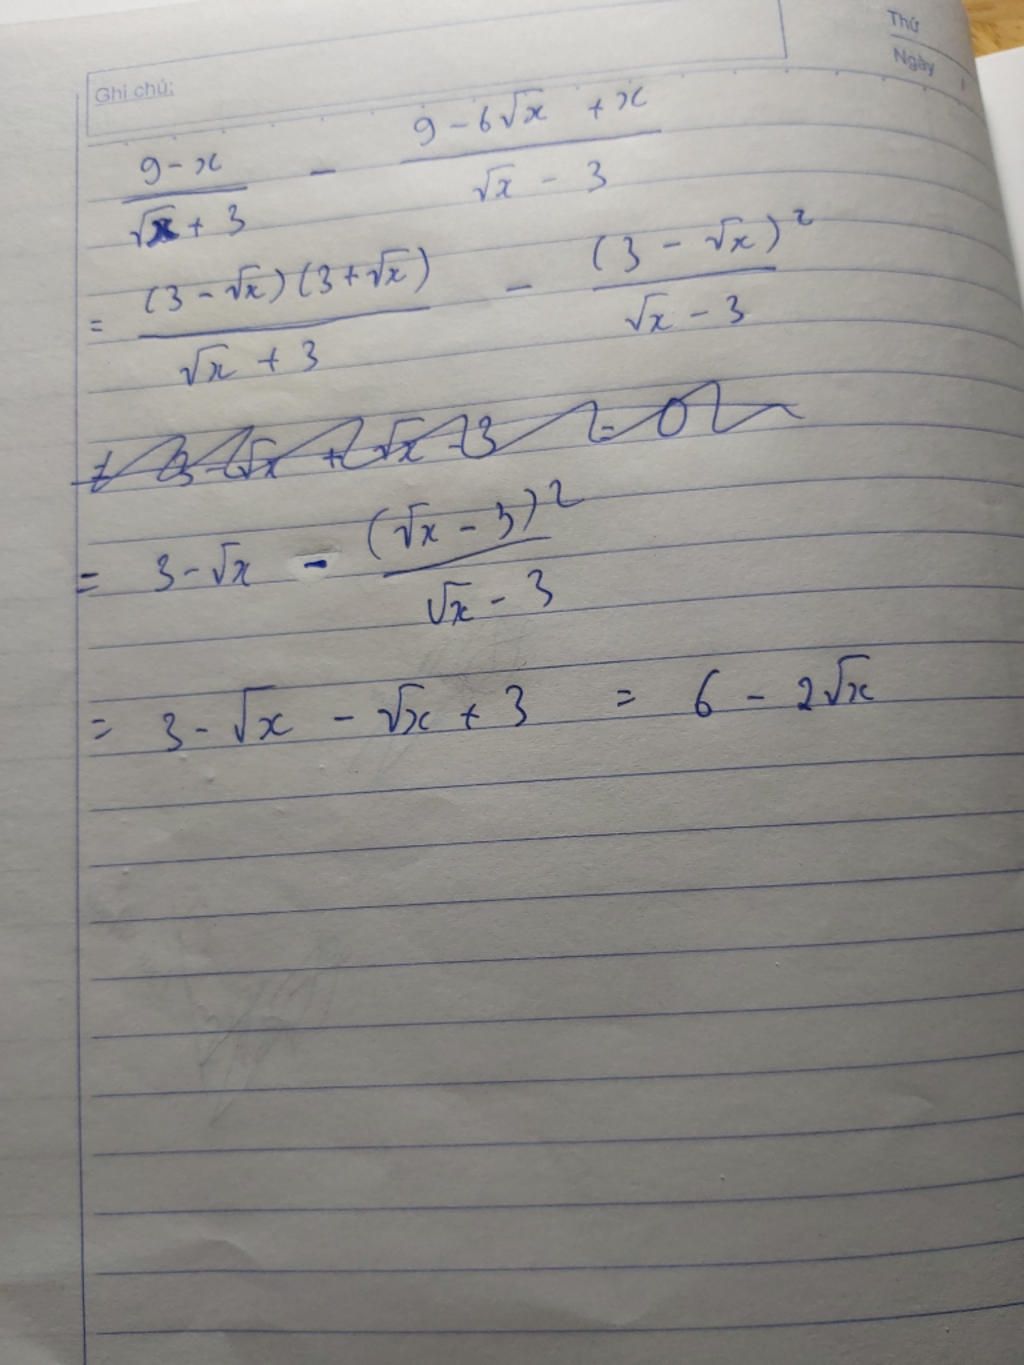 Thứ
Ngày
Ghi chú:
(9 - x)/(√x + 3) - (9 - 6√x + x)/(√x - 3)
= (3 - √x)(3 + √x)/(√x + 3) - (3 - √x)²/(√x - 3)
= 3 - √x + √x - 3 = 0
= 3 - √x - (√x - 3)²/(√x - 3)
= 3 - √x - √x + 3 = 6 - 2√x